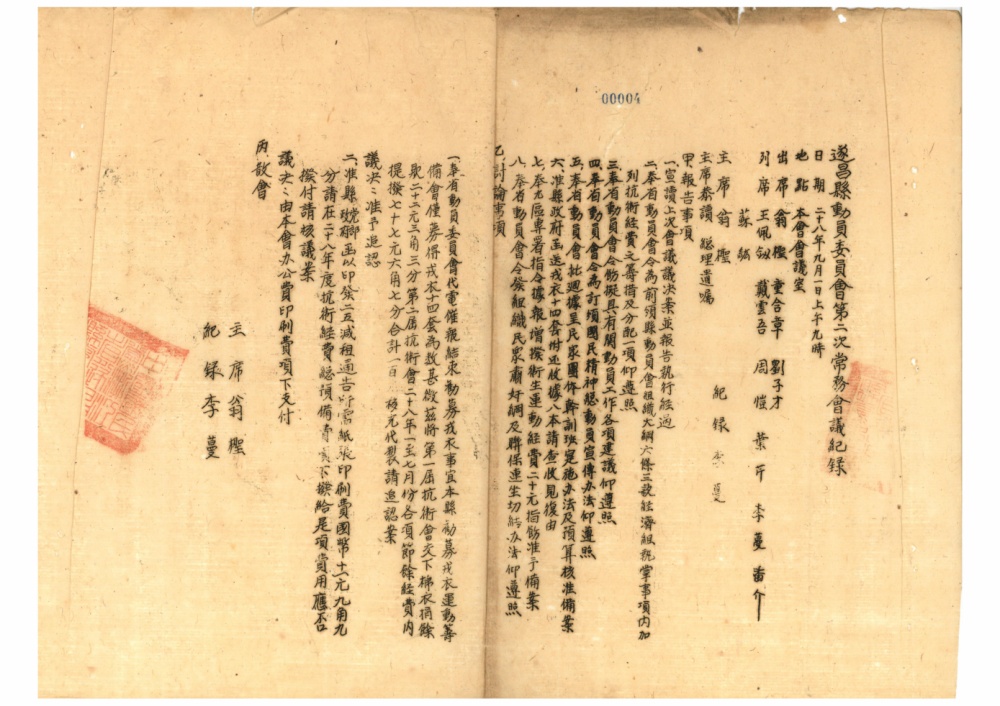 00004
遂昌縣動員委員會第二次常務會議紀錄
日期 二十八年九月一日上午九時
地點 本會會議室
出席 翁檉 童合章 劉子才
列席 王佩 戴雲吾 周愷 葉芹 李蔓
蘇
主席 翁檉 紀錄 李蔓
主席恭讀 總理遺囑
甲、報告事項
一、宣讀上次會議議決案並報告執行經過
二、奉省動員會令為前頒縣動員會組織大綱六條三款經濟組執掌事項內加
列抗衛經費之籌措及分配一項仰遵照
三、奉省動員會令飭擬具有關動員工作各項建議仰遵照
四、奉省動員會令為訂頒國民精神總動員宣傳辦法仰遵照
五、奉省動員會批迴據呈民眾團体幹訓班實施办法及預算核准備案
六、准縣政府函送戎衣十四套附还收據八本請查收見復由
七、奉九區專署指令據報增撥衛生運動經費二十元指飭准予備案
八、奉省動員會令發組織民眾肅奸網及聯保連坐切結办法仰遵照
乙、討論事項
一、奉省動員委員會代電催報結束勸募戎衣事宜本縣勸募戎衣運動籌
備會僅募得戎衣十四套為数甚微茲將第一屆抗衛會交下棉衣捐餘
款二十三元三角三分第二屆抗衛會二十八年一至七月份各項節餘經費內
提撥七十七元六角七分合計一百 元代製請追認案
議決：准予追認
二、准縣 函以印發二五減租通告所需紙張印刷費國幣十二元九角九
分請在二十八年度抗衛經費總預備費項下撥給是項費用應否
撥付請核議案
議決：由本會办公費印刷費項下支付
丙、散會
主席 翁檉
紀錄 李蔓